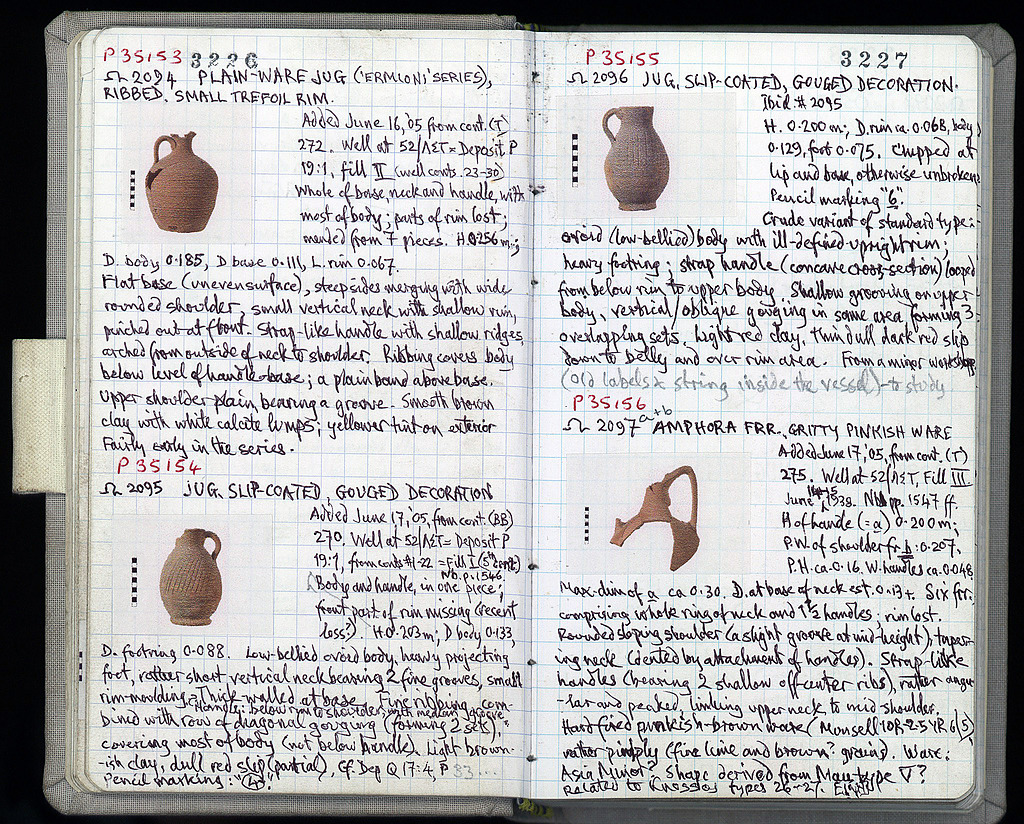 P 35153 3226
Ω 2094 PLAIN-WARE JUG ('ERMIONI' SERIES),
RIBBED. SMALL TREFOIL RIM.
Added June 16,'05 from cont. (T)
272. Well at 52/ΛΣΤ = Deposit P
19:1, fill II (well conts. 23-30)
Whole of base, neck and handle, with
most of body; parts of rim lost;
mended from 7 pieces. H 0.256 m.;
D. body 0.185, D base 0.111, L. rim 0.067.
Flat base (uneven surface), steep sides merging with wide
rounded shoulder, small vertical neck with shallow rim,
pinched out at front. Strap-like handle with shallow ridges,
arched from outside of neck to shoulder. Ribbing covers body
below level of handle-base; a plain band above base.
Upper shoulder plain, bearing a groove. Smooth brown
clay with white calcite lumps; yellower tint on exterior
Fairly early in the series.
P 35154
Ω 2095 JUG, SLIP-COATED, GOUGED DECORATION
Added June 17,'05, from cont. (BB)
270. Well at 52/ΛΣΤ = Deposit P
19:1, from conts #1-22 = Fill I (5th cent.)
Nb. p. 1546.
Body and handle, in one piece;
front part of rim missing (recent
loss?). H 0.203 m; D body 0.133,
D. footring 0.088. Low-bellied ovoid body, heavy projecting
foot, rather short vertical neck bearing 2 fine grooves, small
rim-moulding. Thick-walled at base. Fine ribbing, com-
Handle: below rim to shoulder, with median groove
bined with row of diagonal gouging (forming 2 sets),
covering most of body (not below handle). Light brown-
-ish clay, dull red slip (partial), Cf. Dep Q 17:4, P
Pencil marking: "4".
P 35155 3227
Ω 2096 JUG, SLIP-COATED, GOUGED DECORATION.
Ibid. # 2095
H. 0.200 m; D. rim ca. 0.068, body
0.129, foot 0.075. Chipped at
lip and base, otherwise unbroken.
Pencil marking "6".
Crude variant of standard type:
ovoid (low-bellied) body with ill-defined upright rim;
heavy footring; strap handle (concave cross-section) looped
from below rim to upper body. Shallow grooving on upper
body, vertical/oblique gouging in same area forming 3
overlapping sets. Light red clay. Thin dull dark red slip
down to belly and over rim area. From a minor workshop
(Old labels & string inside the vessel) - to study
P 35156
Ω 2097 a+b AMPHORA FRR., GRITTY PINKISH WARE
Added June 17,'05, from cont. (T)
275. Well at 52/ΛΣΤ, Fill III
June 14-15, 1938. Nb. pp. 1547 ff.
H of handle (= a) 0.200 m;
P.W. of shoulder fr. b: 0.207.
P.H. ca. 0.16. W. handles ca. 0.048
Max. dim of a ca 0.30. D. at base of neck est. 0.13+. Six frr.
comprising whole ring of neck and 1½ handles; rim lost.
Rounded sloping shoulder (a slight groove at mid-height), taper-
ing neck (dented by attachment of handles). Strap-like
handles (bearing 2 shallow off-center ribs), rather angu-
-lar and peaked, linking upper neck to mid-shoulder.
Hard fired pinkish-brown ware (Munsell 10R-2.5YR 6/5),
rather pimply (fine lime and brown? grains). Ware:
Asia Minor? Shape derived from Mau type V?
Related to Knossos types 26-27.